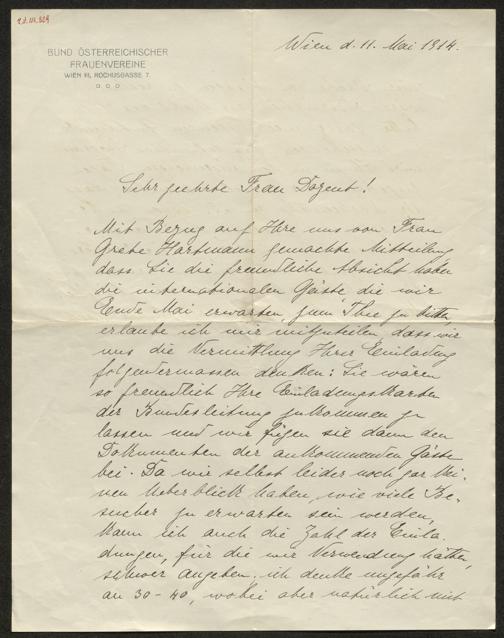 BUND ÖSTERREICHISCHER
FRAUENVEREINE
WIEN III, ROCHUSGASSE 7.
Wien d. 11. Mai 1914.
Sehr geehrte Frau Dozent!
Mit Bezug auf Ihre uns von Frau
Grete Hartmann gemachte Mitteilung
dass Sie die freundliche Absicht haben
die internationalen Gäste, die wir
Ende Mai erwarten, zum Thee zu bitten,
erlaube ich mir mitzuteilen dass wir
uns die Vermittlung Ihrer Einladung
folgendermassen denken: Sie wären
so freundlich Ihre Einladungskarten
der Bundesleitung zukommen zu
lassen und wir fügen sie dann den
Dokumenten der ankommenden Gäste
bei. Da wir selbst leider noch gar kei-
nen Ueberblick haben, wie viele Be-
sucher zu erwarten sein werden,
kann ich auch die Zahl der Einla-
dungen, für die wir Verwendung hätten,
schwer angeben, ich denke ungefähr
an 30-40, wobei aber natürlich nicht